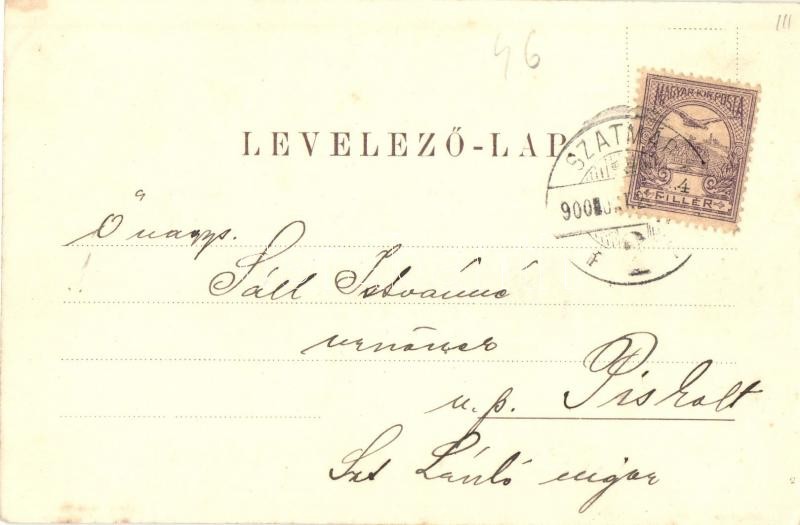 46
III
LEVELEZŐ-LAP
MAGYAR KIR. POSTA
4
FILLÉR
SZATMÁR
900
Ő nagys.
Sáll Istvánné
urnőnek
u.p. Piskolt
Szt László